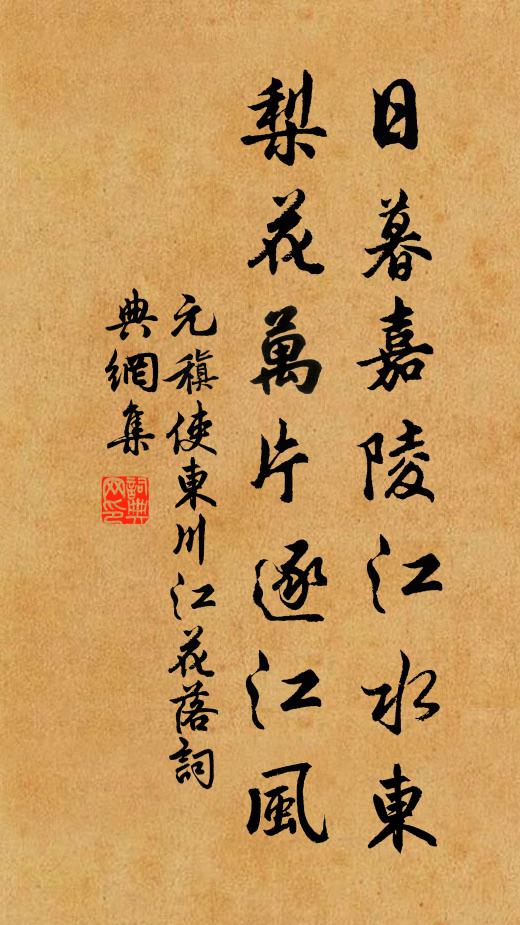 日暮嘉陵江水東
梨花萬片逐江風
元稹使東川江花落詞
典網集
詞典网印